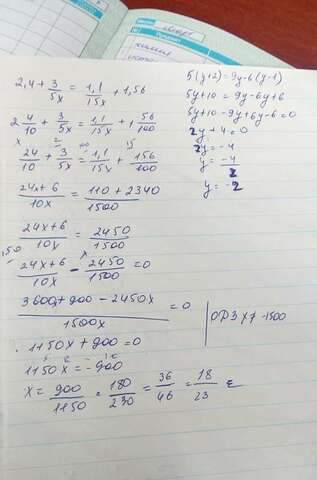 2,4 + 3/5x = 1,1/15x + 1,56
2 4/10 + 3/5x = 1,1/15x + 1 56/100
24/10 + 3/5x = 1,1/15x + 156/100
24x + 6/10x = 110 + 2340/1500
24x+6/10x = 2450/1500
24x+6/10x - 2450/1500 = 0
3600x + 900 - 2450x/1500x = 0
ОДЗ x≠ 1500
1150x + 900 = 0
1150x = -900
x = 900/1150 = 180/230 = 36/46 = 18/23
5(y+2) = 9y-6(y-1)
5y+10 = 9y-6y+6
5y+10-9y+6y-6=0
2y+4=0
2y=-4
y=-4/2
y=-2